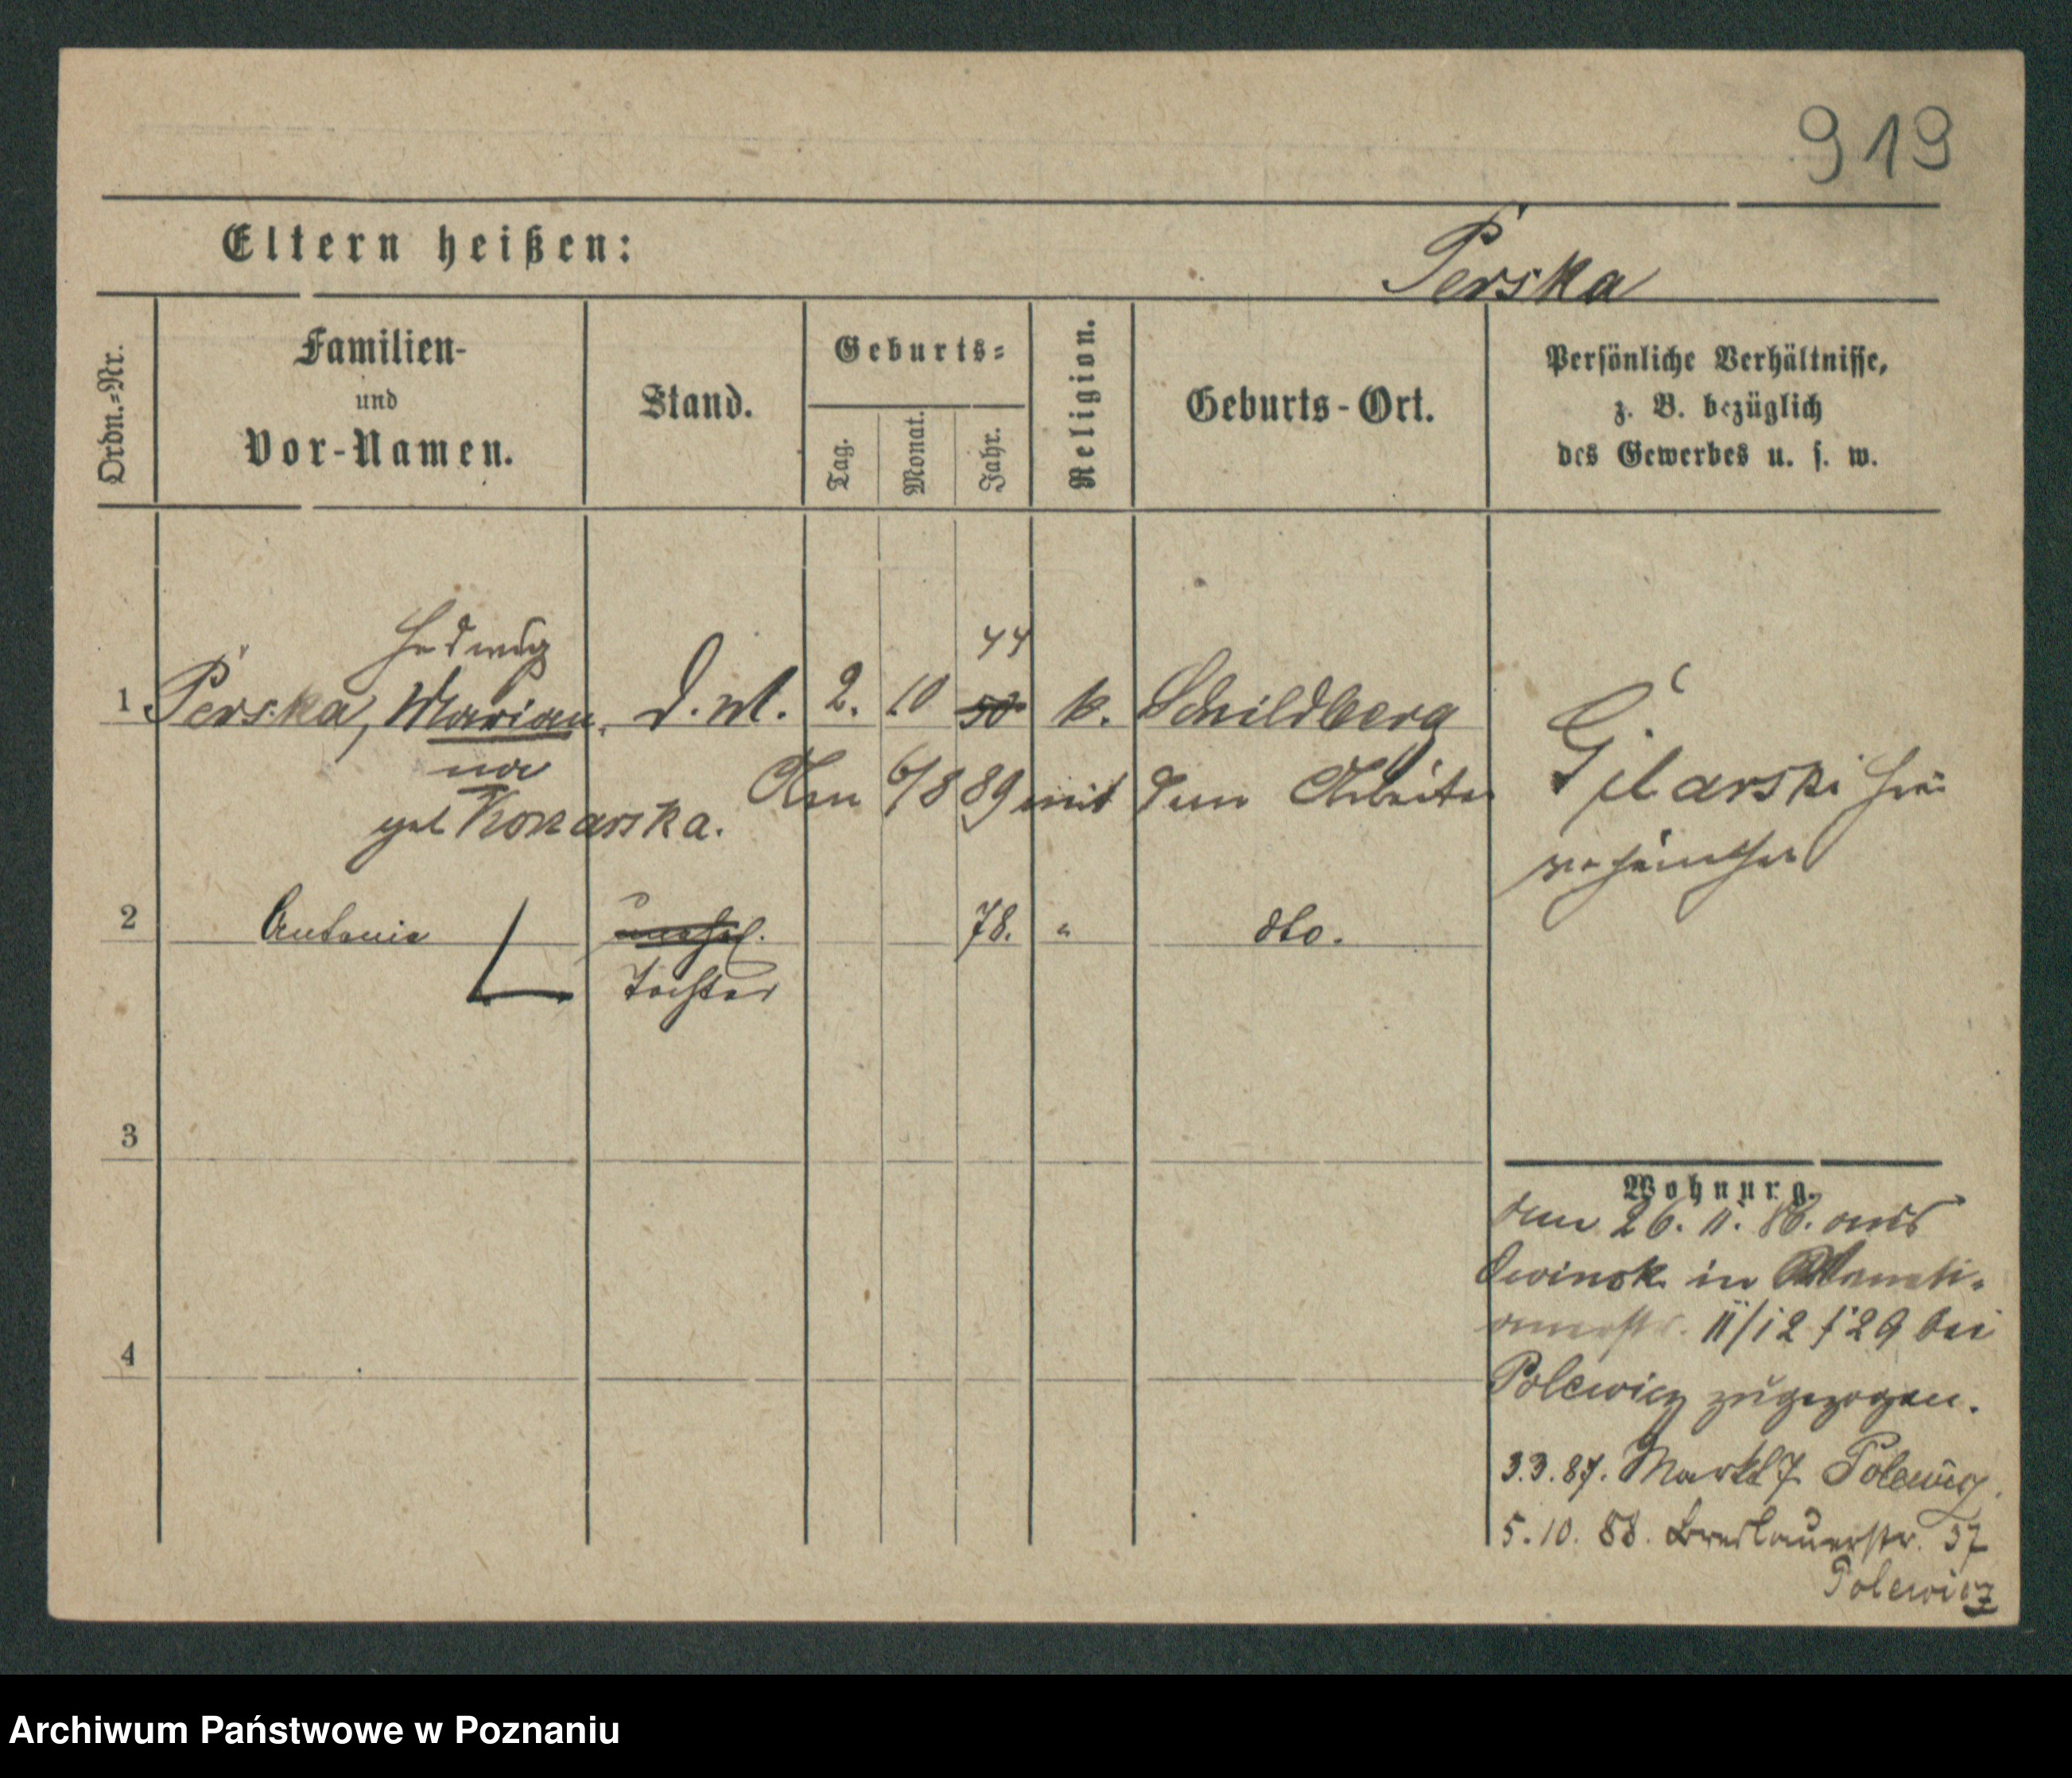 919
Eltern heißen:
Perska
Ordn.=Nr.
Familien-
und
Vor-Namen.
Stand.
Geburts=
Tag.
Monat.
Jahr.
Religion.
Geburts-Ort.
Persönliche Verhältnisse,
z. B. bezüglich
des Gewerbes u. s. w.
Hedwig
44
1 Perska, Marian D. M. 2. 10 50 k. Schildberg
na
Am 6/8 89 mit dem Arbeiter Gilarski hie
geb
verheirathet
2 Antonie unehel. 78. " dto.
Tochter
3
Wohnung.
den 26. 11. 86. aus
Owinsk in
11/12 f 29 bei
4
Polewicz zugezogen.
3.3.87. Markt 7 Polewicz
5.10. 88. Breslauerstr. 37
Polewicz
Archiwum Państwowe w Poznaniu